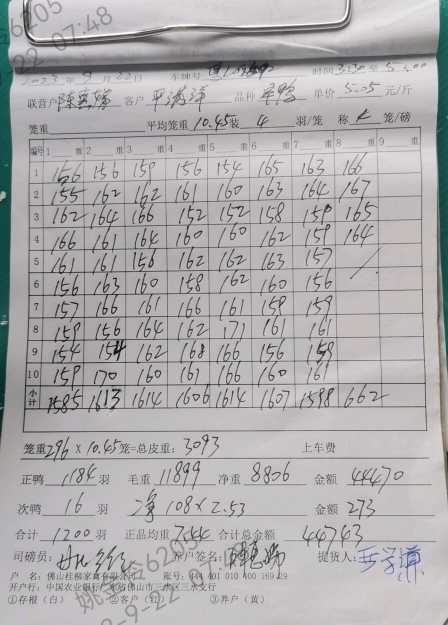 2023年9月22日 车牌号 时间3:30至5:00
联营户 客户 品种 单价 5.05 元/斤
笼重 平均笼重 10.45 装 4 羽/笼 称 笼/磅
编号 1 重 2 重 3 重 4 重 5 重 6 重 7 重 8 重 9 重
1 166 156 150 156 154 165 163 166
2 155 162 162 161 160 163 164 167
3 162 164 166 152 152 158 159 165
4 166 161 164 160 160 162 159 164
5 161 161 156 162 162 163 157
6 156 163 160 158 162 160 156
7 157 166 161 166 161 159 159
8 159 156 164 162 171 161 161
9 154 154 162 168 166 156 159
10 159 170 160 161 166 160 161
小计 1585 1613 1614 1606 1614 1607 1598 662
笼重 296 X 10.45 笼=总皮重: 3093 上车费
正鸭 1184 羽 毛重 11899 净重 8806 金额 44470
次鸭 16 羽 净 108×2.53 金额 273
合计 1200 羽 正品均重 7.44 合计总金额 44743
司磅员: 开户签名: 提货人:
户 名: 佛山桂柳家禽有限公司 账号:
开户行: 中国农业银行 佛山市三水区三水支行
①存根(白) ②客户(红) ③养户(黄)